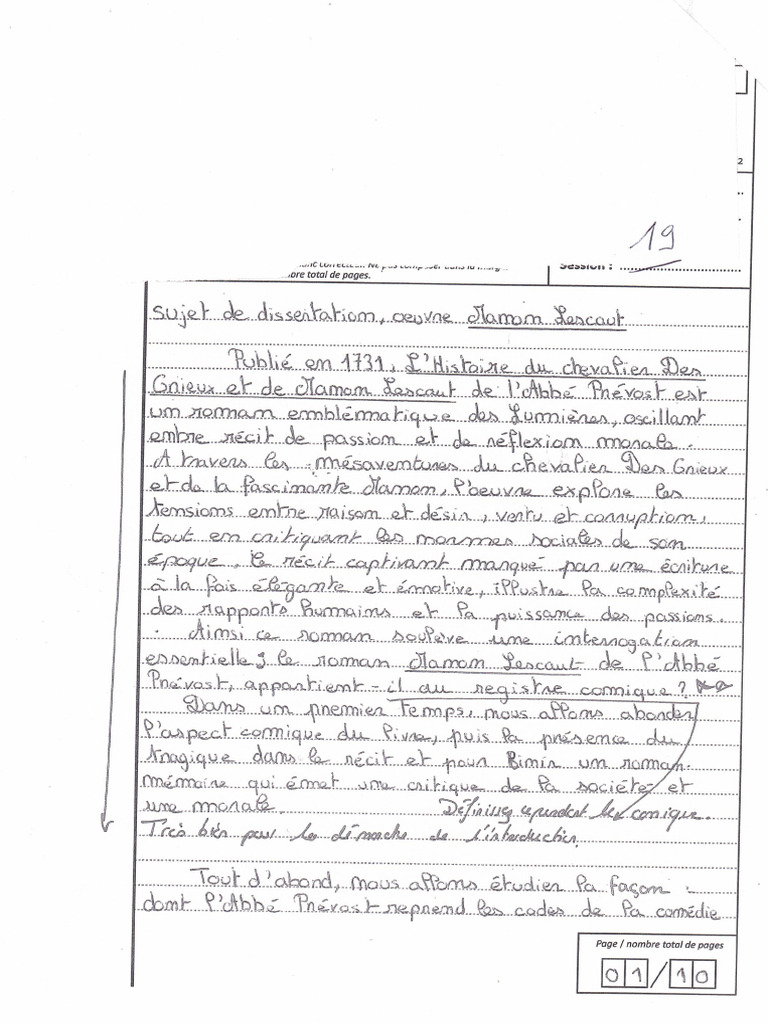 2
19
Session :
.bre total de pages.
Sujet de dissertation, oeuvre Manon Lescaut
Publié en 1731, L'Histoire du chevalier Des
Grieux et de Manon Lescaut de l'Abbé Prévost est
un roman emblématique des Lumières, oscillant
entre récit de passion et de réflexion morale.
A travers les mésaventures du chevalier Des Grieux
et de la fascinante Manon, l'oeuvre explore les
tensions entre raison et désir, vertu et corruption,
tout en critiquant les normes sociales de son
époque. le récit captivant marqué par une écriture
à la fois élégante et émotive, illustre la complexité
des rapports humains et la puissance des passions.
Ainsi ce roman soulève une interrogation
essentielle ; le roman Manon Lescaut de l'Abbé
Prévost, appartient-il au registre comique ?
Dans un premier Temps, nous allons aborder
l'aspect comique du livre, puis la présence du
tragique dans le récit et pour finir un roman-
mémoire qui émet une critique de la société et
une morale. Définissez cependant le comique.
Très bien pour la démarche de l'introduction.
Tout d'abord, nous allons étudier la façon
dont l'Abbé Prévost reprend les codes de la comédie
Page / nombre total de pages
01/10